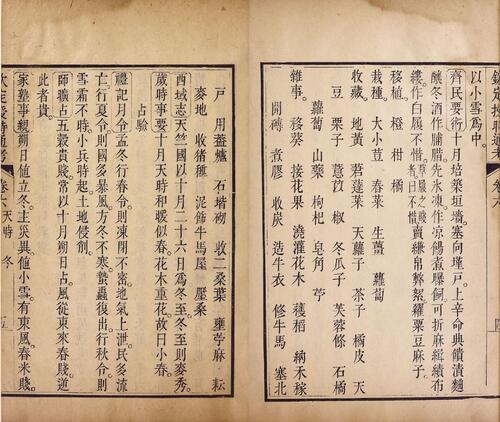 以小雪爲中。
齊民要術十月培築垣墻塞向墐戸。上辛命典饋漬麯
釀冬酒作脯腊先氷凍作凉餳煮暴飴可折麻緝績布
縷作白履不惜。草履之賤者曰不惜賣縑帛弊絮糴粟豆麻子。
移植 橙 柑 橘
栽種 大小荳 春菜 生薑 蘿蔔
收藏 地黃 莙薘菜 天蘿子 茶子 橘皮 天
豆 栗子 薏苡 椒 冬瓜子 芙蓉條 石橘
蘿蔔 山藥 枸杞 皂角 苧
雜事 移葵 接花果 澆灌花木 穫稻 納禾稼
開磚 煮膠 收炭 造牛衣 修牛馬 塞北
戸 用葢爐 石墖砌 收二桑葉 壅苧麻 耘
麥地 收猪種 泥飾牛馬屋 壓桑
西域志天竺國以十月二十六日爲冬至。冬至則麥秀。
歲時事要十月天時和暖似春。花木重花故曰小春。
占驗
禮記月令孟冬行春令則凍閉不密地氣上泄民多流
亡行夏令則國多暴風方冬不寒蟄蟲復出行秋令則
雪霜不時小兵時起土地侵削。
師曠占五穀貴賤常以十月朔日占風從東來春賤逆
此者貴。
家塾事親朔日値立冬。主災異。値小雪有東風。春米賤。
欽定授時通考 卷六 天時 冬 五